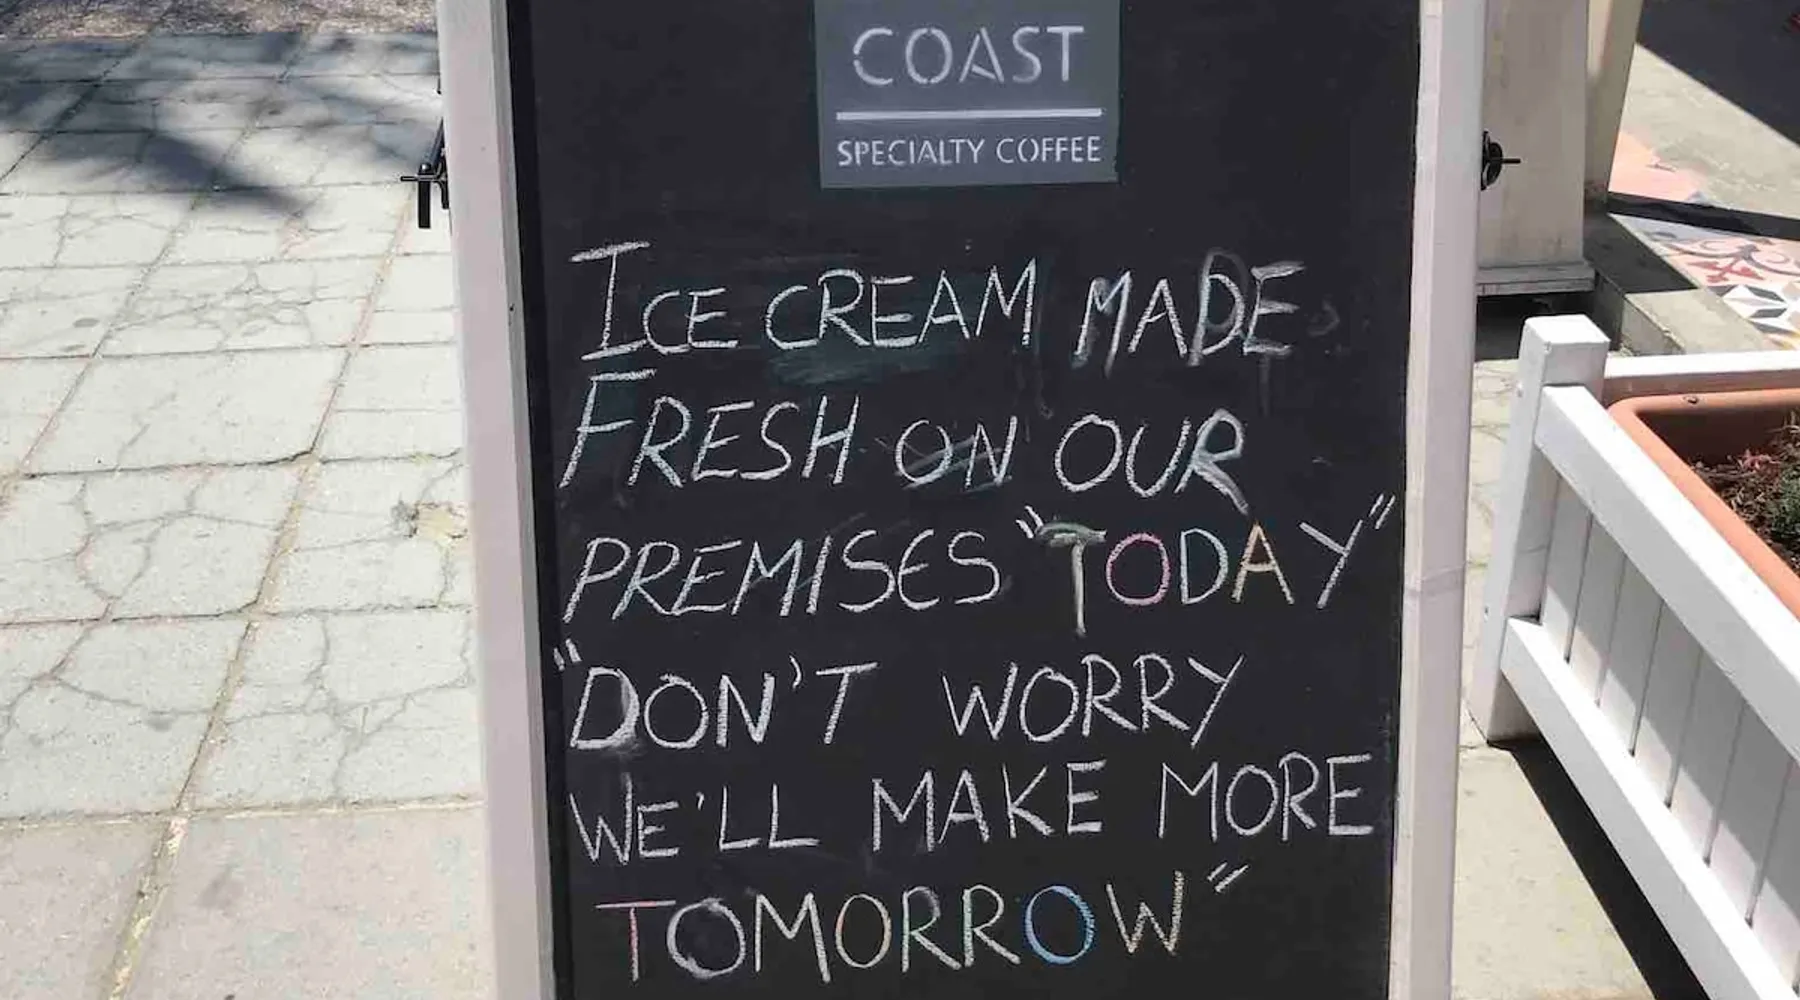 COAST
SPECIALTY COFFEE
ICE CREAM MADE
FRESH ON OUR
PREMISES "TODAY"
"DON'T WORRY
WE'LL MAKE MORE
TOMORROW"